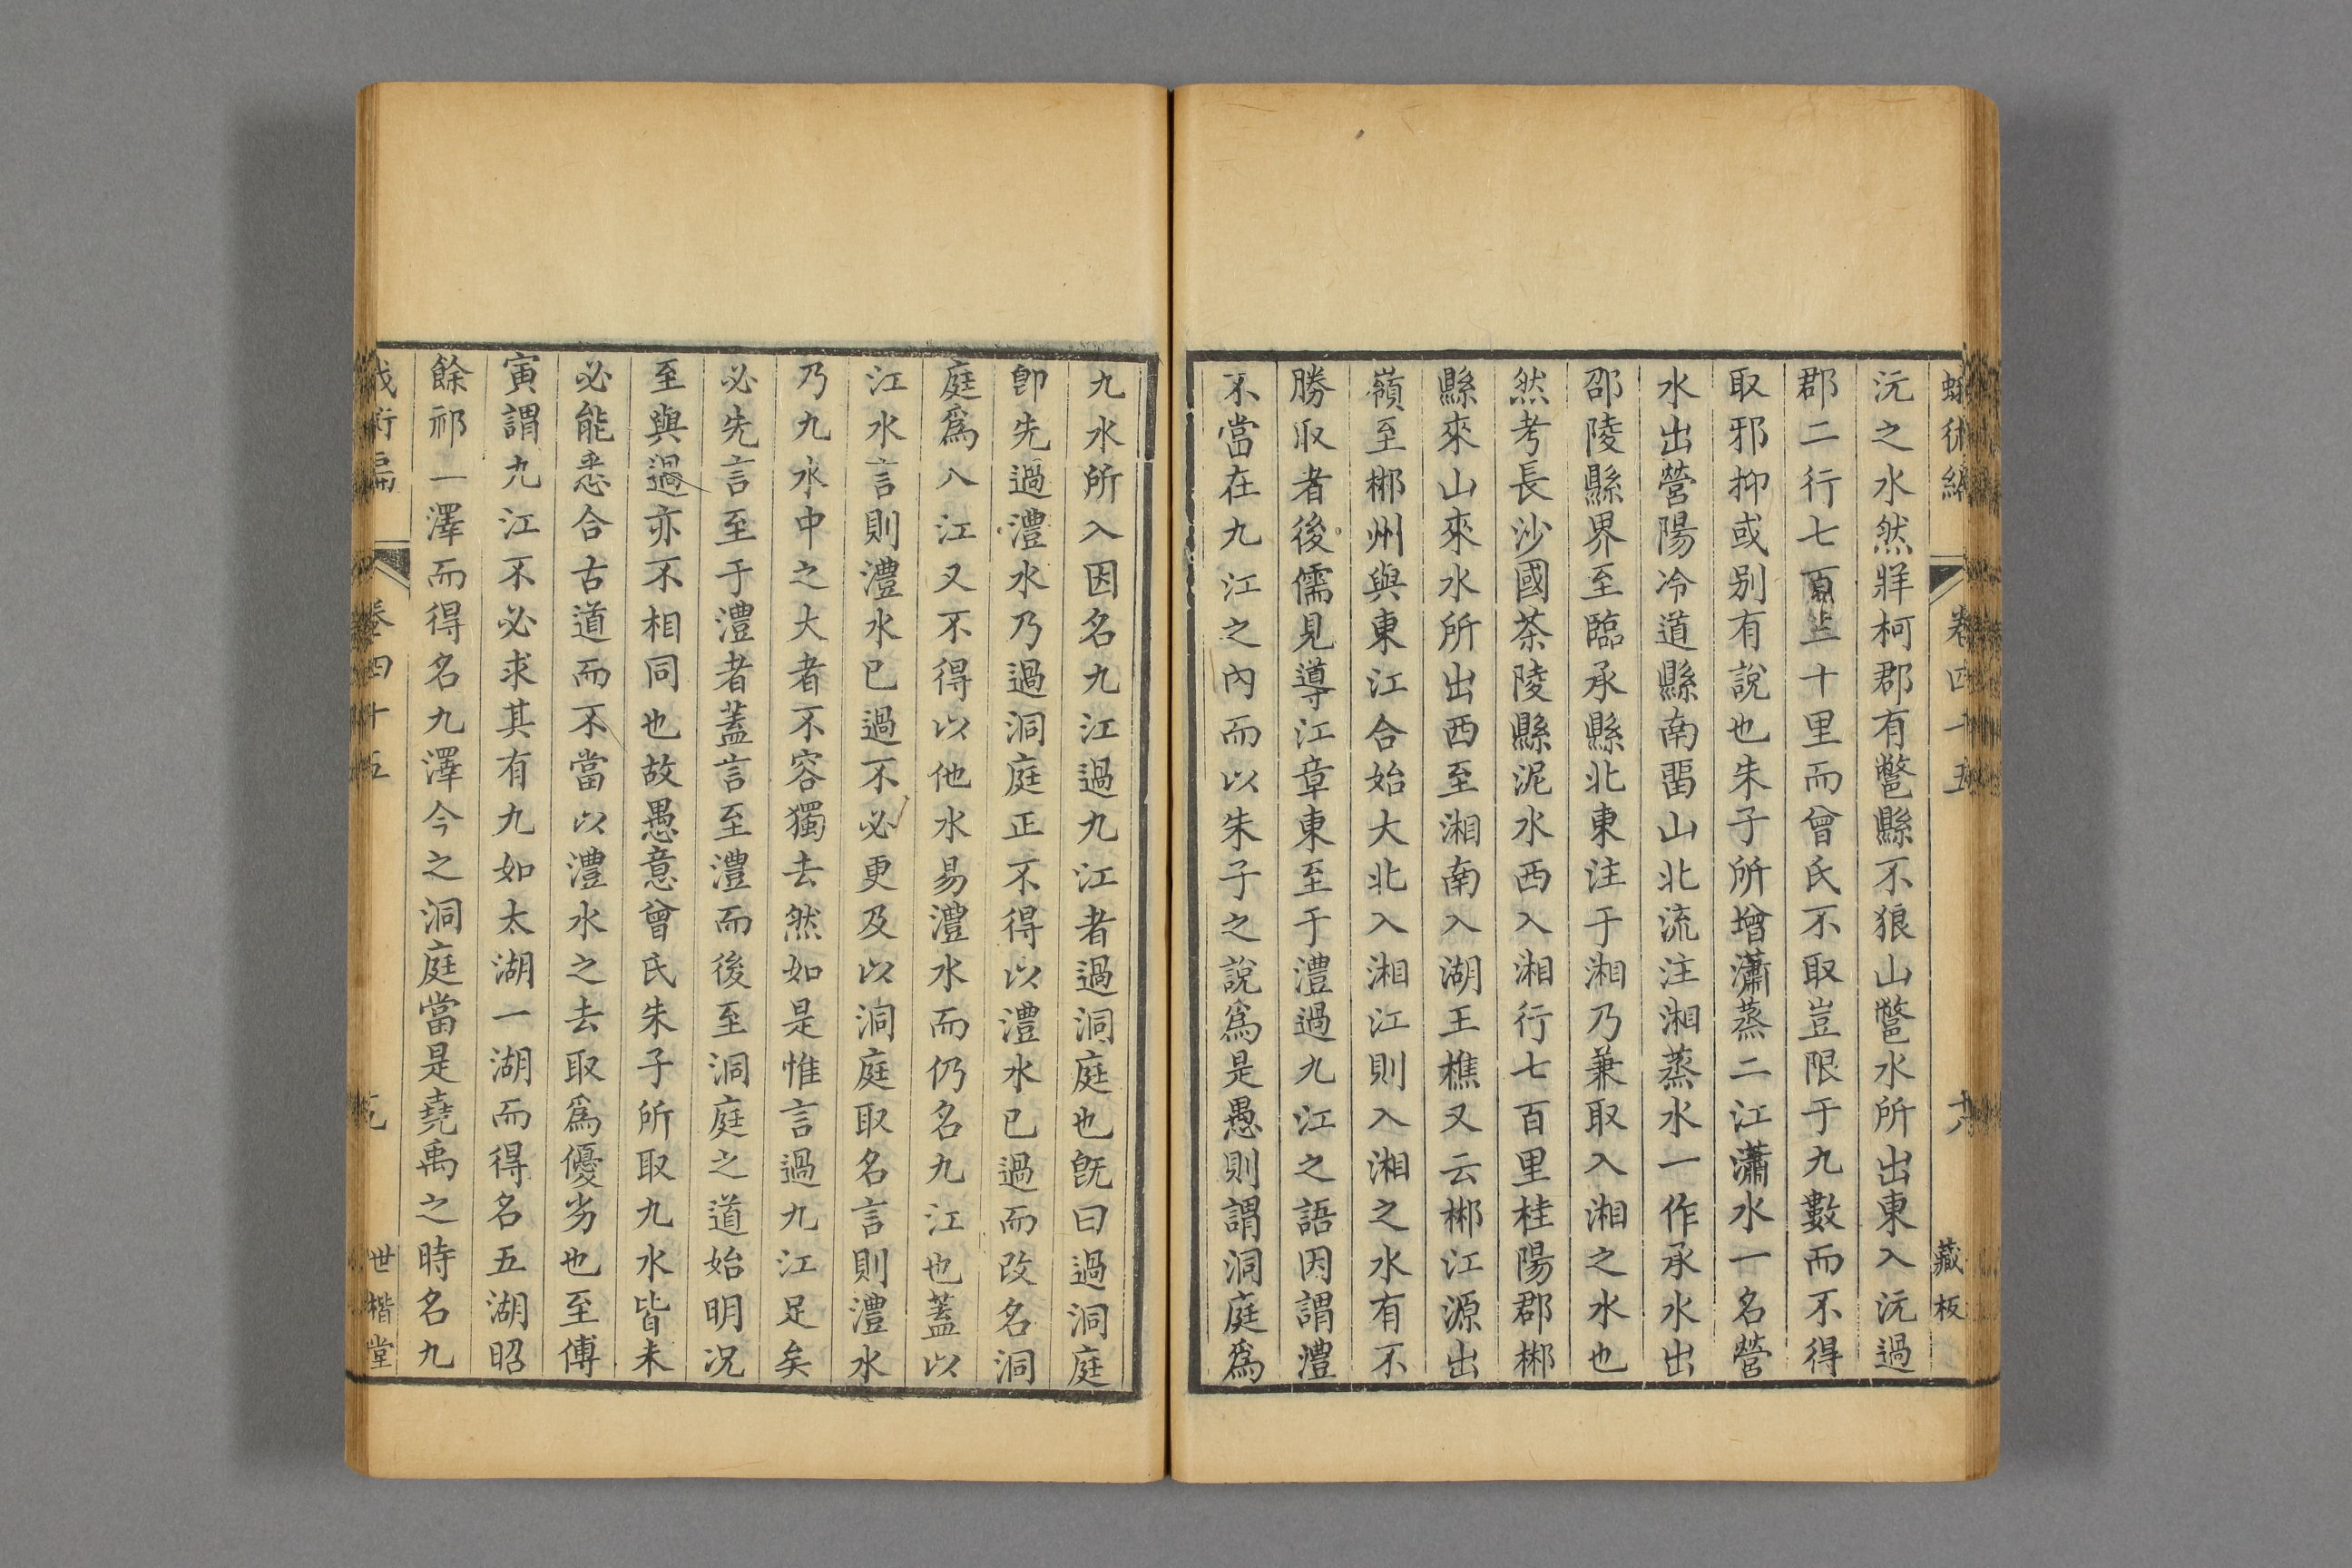 沅之水然牂柯郡有鄨縣不狼山鄨水所出東入沅過
郡二行七百三十里而曾氏不取豈限于九數而不得
取邪抑或别有說也朱子所增瀟蒸二江瀟水一名營
水出營陽冷道縣南畱山北流注湘蒸水一作承水出
邵陵縣界至臨承縣北東注于湘乃兼取入湘之水也
然考長沙國茶陵縣泥水西入湘行七百里桂陽郡郴
縣來山來水所出西至湘南入湖王樵又云郴江源出
嶺至郴州與東江合始大北入湘江則入湘之水有不
勝取者後儒見導江章東至于澧過九江之語因謂澧
不當在九江之內而以朱子之說爲是愚則謂洞庭爲
卷四十五
藏板
九水所入因名九江過九江者過洞庭也旣曰過洞庭
卽先過澧水乃過洞庭正不得以澧水已過而改名洞
庭爲八江又不得以他水易澧水而仍名九江也蓋以
江水言則澧水已過不必更及以洞庭取名言則澧水
乃九水中之大者不容獨去然如是惟言過九江足矣
必先言至于澧者蓋言至澧而後至洞庭之道始明况
至與過亦不相同也故愚意曾氏朱子所取九水皆未
必能悉合古道而不當以澧水之去取爲優劣也至傅
寅謂九江不必求其有九如太湖一湖而得名五湖昭
餘祁一澤而得名九澤今之洞庭當是堯禹之時名九
蛾術編
卷四十五
世楷堂